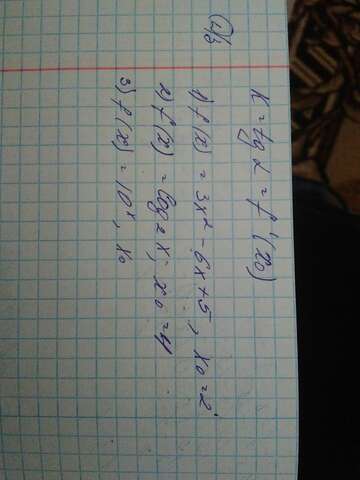 K = tg α = f'(x₀)
1) f(x) = 3x² - 6x + 5, x₀ = 2
2) f(x) = log₂ x; x₀ = 4
3) f(x) = 10ˣ, x₀